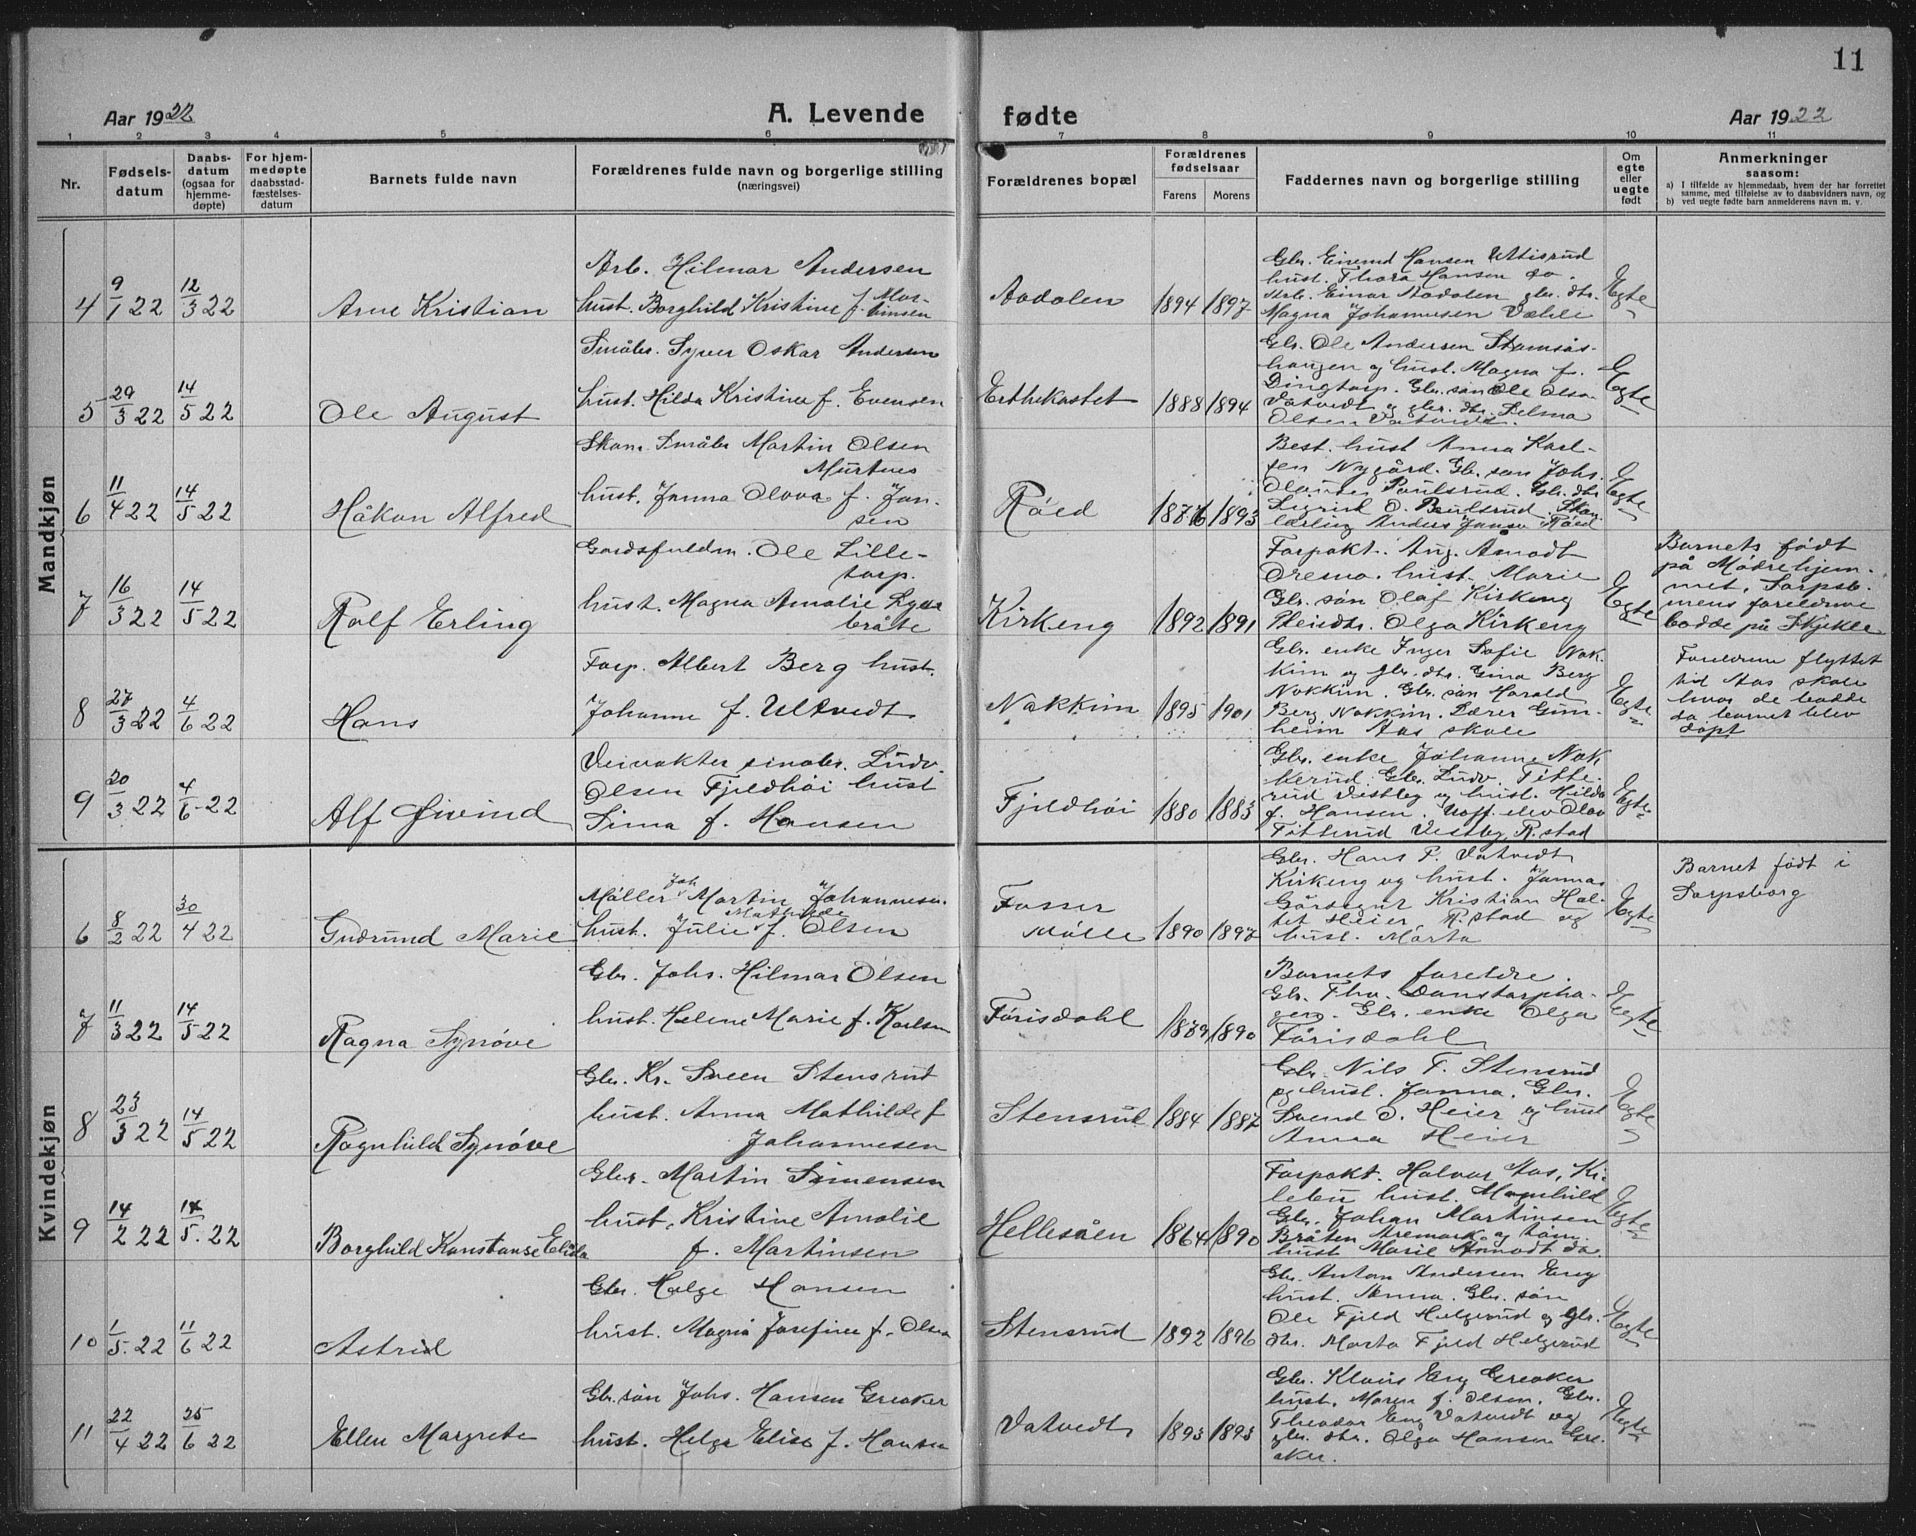 11
Aar 1922 A. Levende fødte Aar 1922
1 2 3 4 5 6 7 8 9 10 11
Nr. Fødsels-datum Daabs-datum (ogsaa for hjemme-døpte) For hjem-medøpte daabsstad-fæstelses-datum Barnets fulde navn Forældrenes fulde navn og borgerlige stilling (næringsvei) Forældrenes bopæl Forældrenes fødselsaar Farens Morens Faddernes navn og borgerlige stilling Om egte eller uegte født Anmerkninger saasom:
a) I tilfælde av hjemmedaab, hvem der har forrettet samme, med tilføielse av to daabsvidners navn, og
b) ved uegte fødte barn anmelderens navn m. v.
Mandkjøn
4 9/1 22 12/3 22 Arne Kristian
Arb. Hilmar Andersen
hust. Borghild Kristine f. Martinsen
Aadalen 1894 1897
Gbr. Eivind Hansen Uttisrud
hust. Thora Hansen do.
Arb. Einar Aadalen gbr. dtr.
Magna Johannesen Væhle
Egte
5 29/3 22 14/5 22 Ole August
Småbr. Syver Oskar Andersen
hust. Hilda Kristine f. Evensen
Ertekastet 1888 1894
Gbr. Ole Andersen
haugen og hust. Magna f.
Dingtorp. Gbr. søn Ole Olsen
Vatvedt og gbr. dtr. Selma
Olsen Vatvedt.
Egte
6 11/4 22 14/5 22 Håkon Alfred
Skom. Småbr Martin Olsen
Murtnes
hust. Janna Olova f. Jansen
Røed 1876 1893
Best. hust Anna Karlsen
Nygård. Gbr. søn Johs.
Olander Paulsrud. Gbr. dtr
Sigrid O. Paulsrud. Skom.
lærling Anders Jansen Røed
Egte
7 16/3 22 14/5 22 Rolf Erling
Gårdsfuldm. Ole Lilletorp.
hust. Magna Amalie
bråte
Kirkeng 1892 1891
Forpakt. Aug. Åmodt
hust. Marie
Gbr. søn Olaf Kirkeng
Olga Kirkeng
Egte
Barnets født
på Mødrehjemmet, Sarpsb.
mens foreldrene
bodde på Skjekle
8 27/3 22 4/6 22 Hans
Forp. Albert Berg hust.
Johanne f. Ultvedt
Nakkim 1895 1901
Gbr. enke Inger Sofie Nakkim
og gbr. dtr. Gina Berg
Nakkim. Gbr. søn Harald
Berg Nakkim. Lærer Gunheim
Aas skole
Egte
Foreldrene flyttet
til Aas skole
hvor de bodde
da barnet blev
døpt
9 20/3 22 4/6 22 Alf Øivind
Veivokter småbr. Ludv.
Olsen Fjeldhøi hust
Sina f. Hansen
Fjeldhøi 1880 1883
Gbr. enke Johanne Nakkerud.
Gbr. Ludv. Titterud
Vestby og hust. Hilda
f. Hansen. Uoff. elev Olav
Titterud Vestby, R.stad
Egte
Kvindekjøn
6 8/2 22 30/4 22 Gudrund Marie
Møller Joh. Martin Johannesen
hust. Julie Mathilde f. Olsen
Fosser
Mølle 1890 1897
Gbr. Hans P. Vatvedt
Kirkeng og hust. Janna
Gårdsgut Kristian Haltet
Heier R.stad og
hust. Märta
Egte
Barnet født i
Sarpsborg
7 11/3 22 14/5 22 Ragna Synøve
Gbr. Johs. Hilmar Olsen
hust. Helene Marie f. Karlsen
Førisdahl 1889 1890
Barnets foreldre.
Gbr. Thv. Danstorphagen.
Gbr. enke Olga
Førisdahl
Egte
8 23/3 22 14/5 22 Ragnhild Synøve
Gbr. Kr. Sveen Stensrud
hust. Anna Mathilde f
Johannesen
Stensrud 1884 1887
Gbr. Nils F. Stensrud
og hust. Janna. Gbr.
Svend O. Heier og hust
Anna Heier
Egte
9 14/2 22 14/5. 22 Borghild Konstanse Elida
Gbr. Martin Simensen
hust. Kristine Amalie
f. Martinsen
Hellesåen 1864 1890
Forpakt. Halvor Aas, Kilebu
hust. Magnhild
Gbr. Johan Martinsen
Bråten Aremark og
hust Marie Åmodt do.
Egte
10 1/5. 22 11/6 22 Astrid
Gbr. Helge Hansen
hust. Magna Josefine f. Olsen
Stensrud 1892 1896
Gbr. Anton Andersen Eng
hust. Anna. Gbr. søn
Ole Fjeld Helgerud og gbr.
dtr. Marta Fjeld Helgerud
Egte
11 22/4 22 25/6 22 Ellen Margrete
Gbr. søn Johs. Hansen Greaker
hust. Helga Elise f. Hansen
Vatvedt 1893 1893
Gbr. Klaus Eng Greaker
hust. Maren f. Olsen. Gbr.
Theodor Eng Vatvedt og
gbr. dtr. Olga Hansen Greaker.
Egte